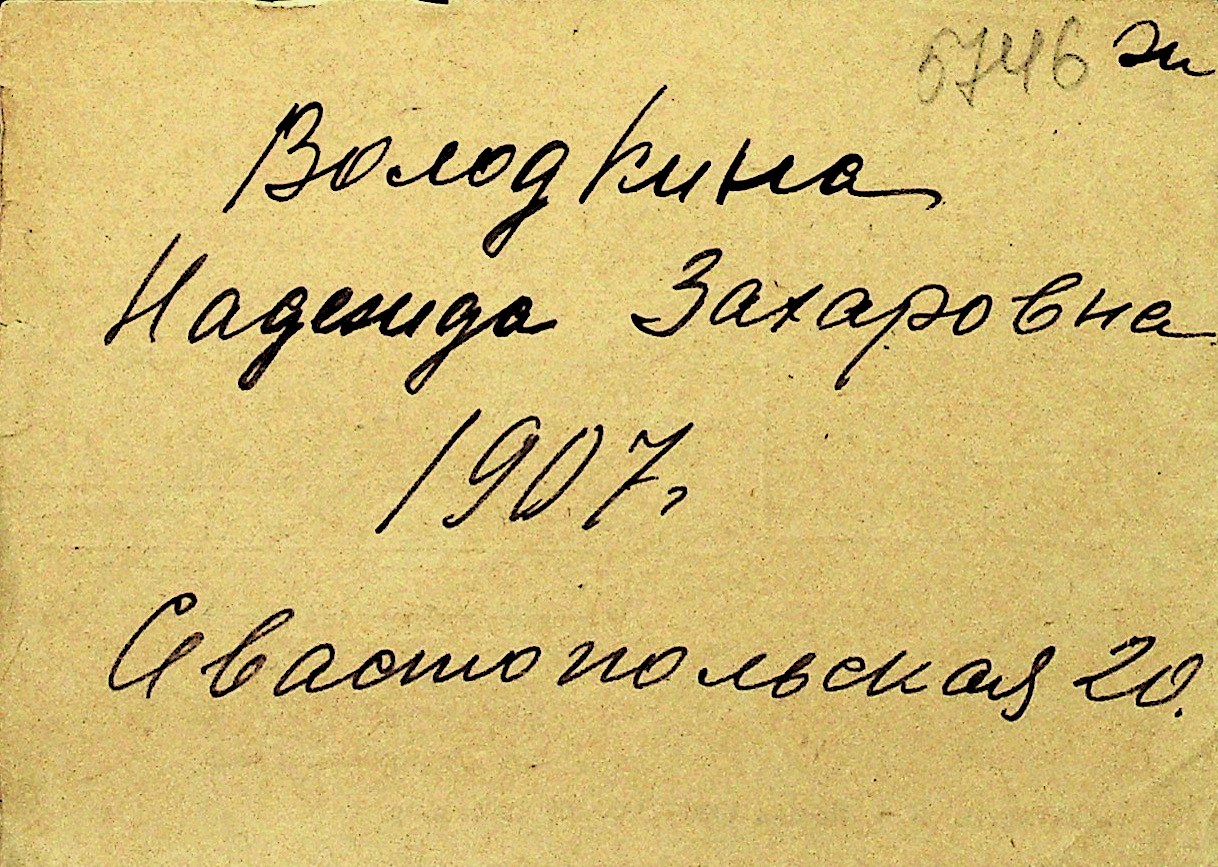 5746 ж
Володкина
Надежда Захаровна
1907г
Севастопольская 20.